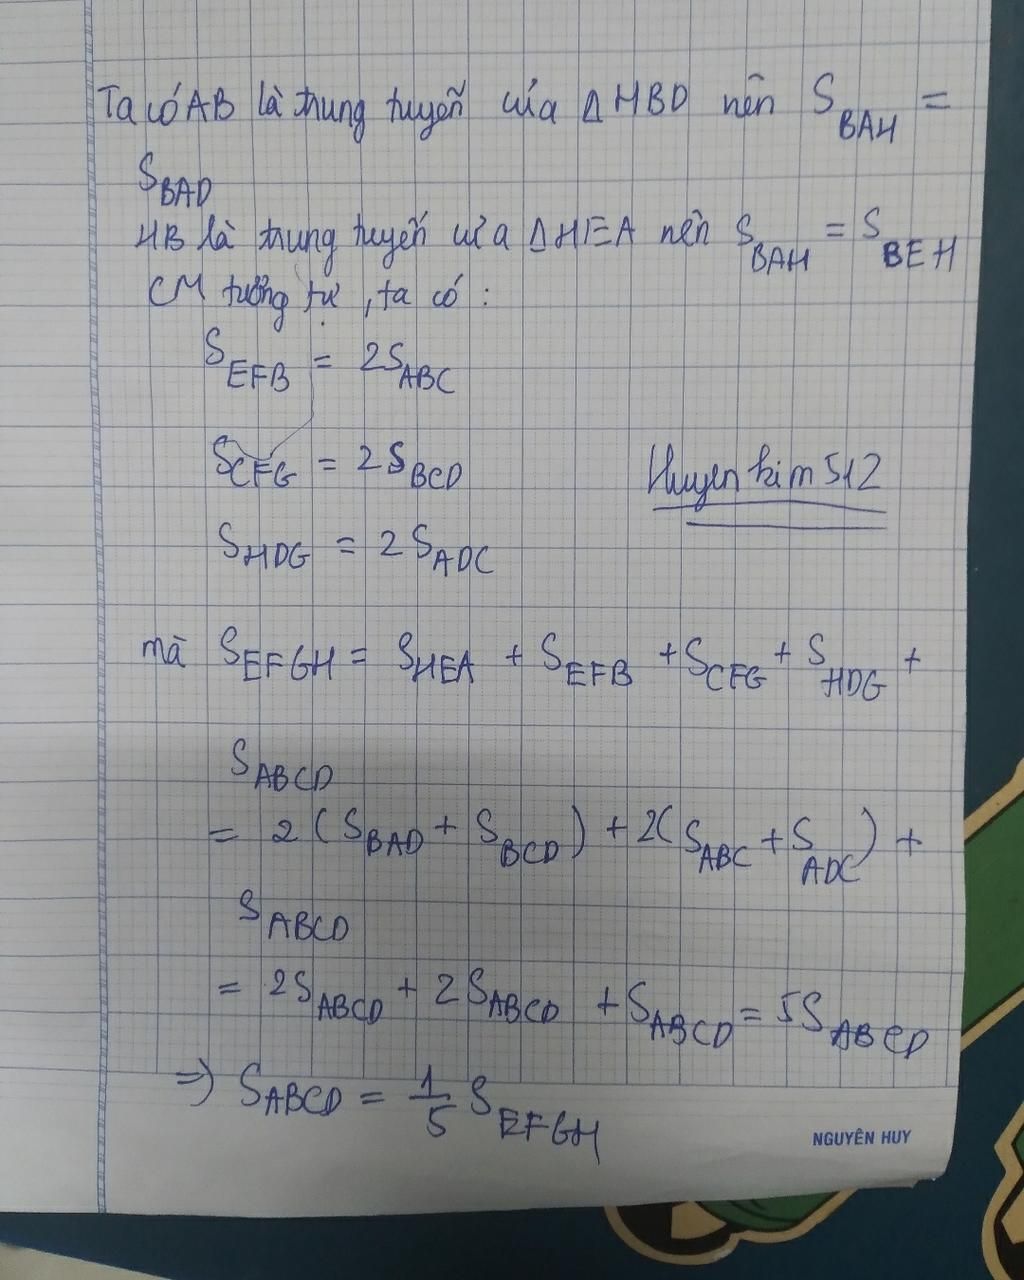 Ta có AB là trung tuyến của Δ HBD nên S_BAH =
S_BAD
HB là trung tuyến của ΔHEA nên S_BAH = S_BEH
CM tường tự, ta có :
S_EFB = 2S_ABC
S_CFG = 2S_BCD
Huyen kim 512
S_HDG = 2S_ADC
mà S_EFGH = S_HEA + S_EFB + S_CFG + S_HDG +
S_ABCD
= 2(S_BAD + S_BCD) + 2(S_ABC + S_ADC) +
S_ABCD
= 2S_ABCD + 2S_ABCD + S_ABCD = 5S_ABCD
=> S_ABCD = 1/5 S_EFGH
NGUYÊN HUY